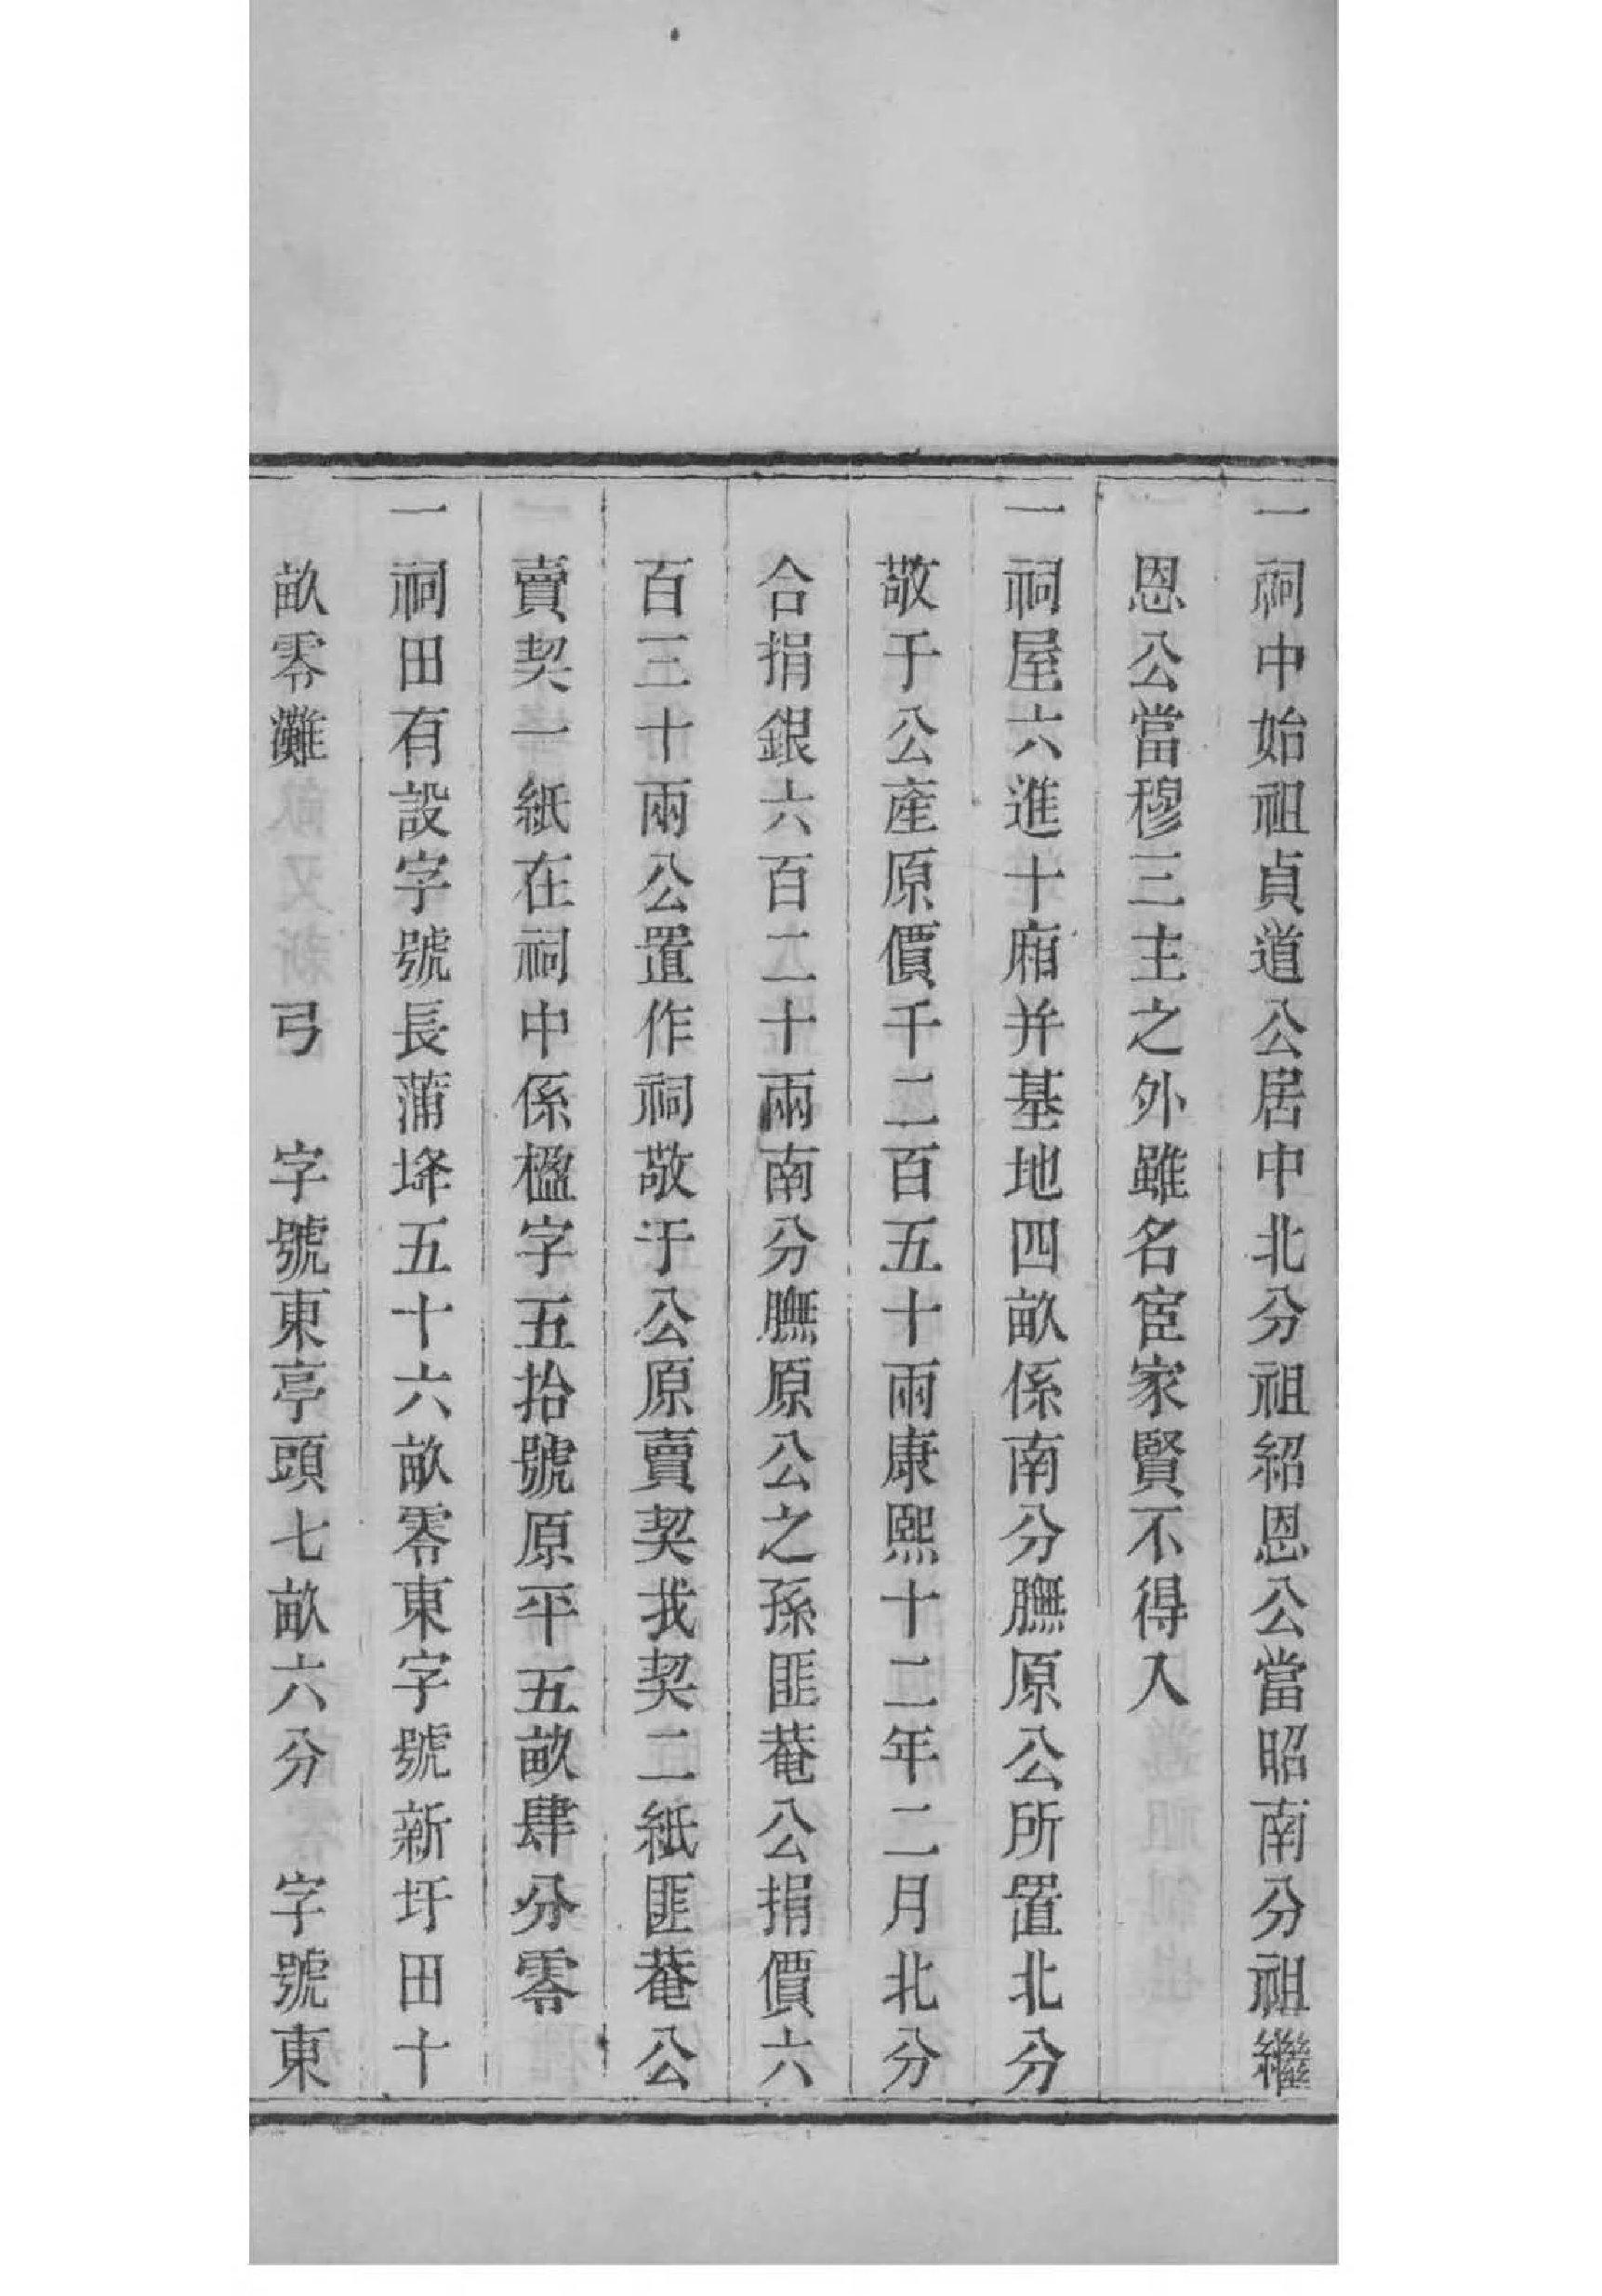 一祠中始祖貞道公居中北分祖紹恩公當昭南分祖繼
恩公當穆三主之外雖名宦家賢不得入
一祠屋六進十廂并基地四畝係南分膴原公所置北分
敬于公產原價千二百五十兩康熙十二年二月北分
合捐銀六百二十兩南分膴原公之孫匪菴公捐價六
百三十兩公置作祠敬于公原賣契我契二紙匪菴公
賣契一紙在祠中係楹字五拾號原平五畝肆分零
一祠田有設字號長蒲垏五十六畝零東字號新圩田十
畝零灘　　　弓　字號東亭頭七畝六分　字號東